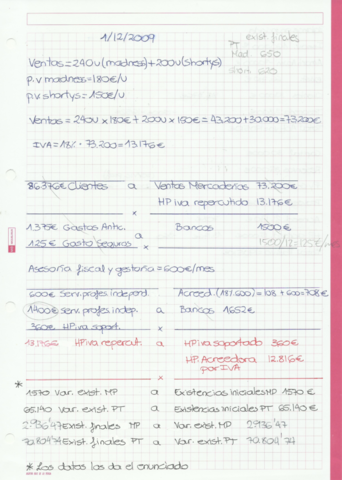 1/12/2009
exist finales
PT
Mad. 650
Short. 620
Ventas = 240u (madness) + 200u (shortys)
p.v madnes = 180€/u
p.v. shortys = 150€/u
Ventas = 240u x 180€ + 200u x 150€ = 43.200 + 30.000 = 73.200€
IVA = 18% · 73.200 = 13.176€
86.376€ Clientes a Ventas Mercaderías 73.200€
HP iva repercutido 13.176€
x
1.375€ Gastos Antic. a Bancos 1500€
125€ Gasto Seguros x 1500/12=125€/mes
Asesoría fiscal y gestoría = 600€/mes
600€ Serv. profes. independ. Acreed. (18%600) = 108 + 600 = 708€
1400€ serv. profes. indep. a Bancos 1652€
360€ HP iva soport. x
13.176€ HP iva repercut. a HP iva soportado 360€
HP. Acreedora 12.816€
por IVA
x
*
1570 Var. exist. MP a Existencias iniciales MP 1570€
65.140 Var. exist. PT a Existencias iniciales PT 65.140€
2.936'47 Exist. finales MP a Var. exist. MP 2936'47
72.804'74 Exist. finales PT a Var. exist. PT 72.804'74
* Los datos las da el enunciado